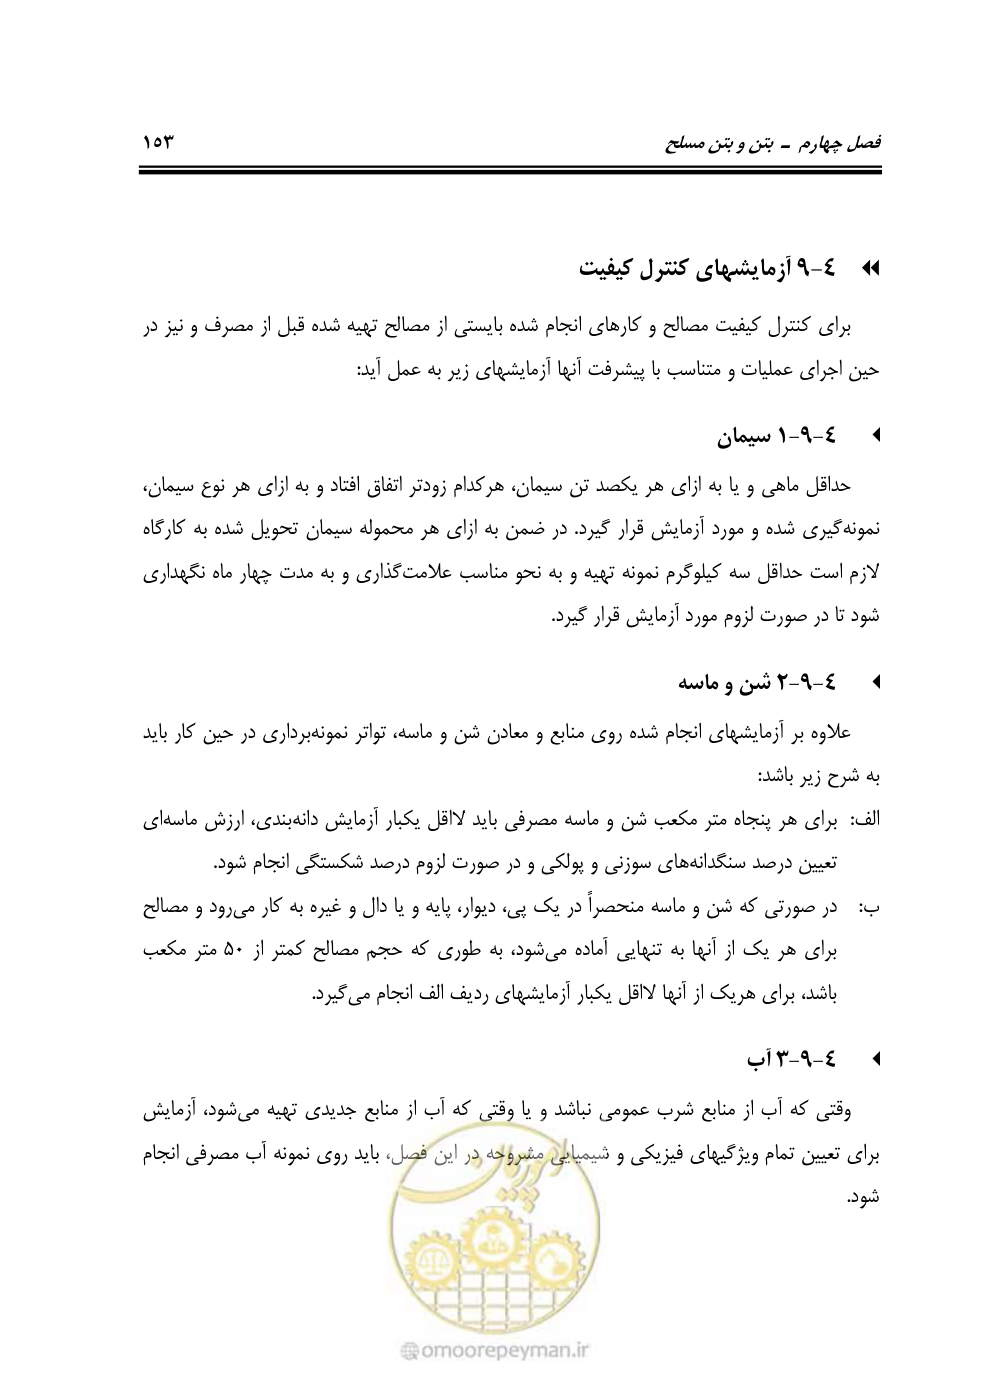 فصل چهارم ـ بتن و بتن مسلح ۱۵۳
۴-۹ آزمایشهای کنترل کیفیت
برای کنترل کیفیت مصالح و کارهای انجام شده بایستی از مصالح تهیه شده قبل از مصرف و نیز در
حین اجرای عملیات و متناسب با پیشرفت آنها آزمایشهای زیر به عمل آید:
۴-۹-۱ سیمان
حداقل ماهی و یا به ازای هر یکصد تن سیمان، هرکدام زودتر اتفاق افتاد و به ازای هر نوع سیمان،
نمونه‌گیری شده و مورد آزمایش قرار گیرد. در ضمن به ازای هر محموله سیمان تحویل شده به کارگاه
لازم است حداقل سه کیلوگرم نمونه تهیه و به نحو مناسب علامت‌گذاری و به مدت چهار ماه نگهداری
شود تا در صورت لزوم مورد آزمایش قرار گیرد.
۴-۹-۲ شن و ماسه
علاوه بر آزمایشهای انجام شده روی منابع و معادن شن و ماسه، تواتر نمونه‌برداری در حین کار باید
به شرح زیر باشد:
الف: برای هر پنجاه متر مکعب شن و ماسه مصرفی باید لااقل یکبار آزمایش دانه‌بندی، ارزش ماسه‌ای
تعیین درصد سنگدانه‌های سوزنی و پولکی و در صورت لزوم درصد شکستگی انجام شود.
ب: در صورتی که شن و ماسه منحصراً در یک پی، دیوار، پایه و یا دال و غیره به کار می‌رود و مصالح
برای هر یک از آنها به تنهایی آماده می‌شود، به طوری که حجم مصالح کمتر از ۵۰ متر مکعب
باشد، برای هریک از آنها لااقل یکبار آزمایشهای ردیف الف انجام می‌گیرد.
۴-۹-۳ آب
وقتی که آب از منابع شرب عمومی نباشد و یا وقتی که آب از منابع جدیدی تهیه می‌شود، آزمایش
برای تعیین تمام ویژگیهای فیزیکی و شیمیایی مشروحه در این فصل، باید روی نمونه آب مصرفی انجام
شود.
امور پیمان
@omoorepeyman.ir